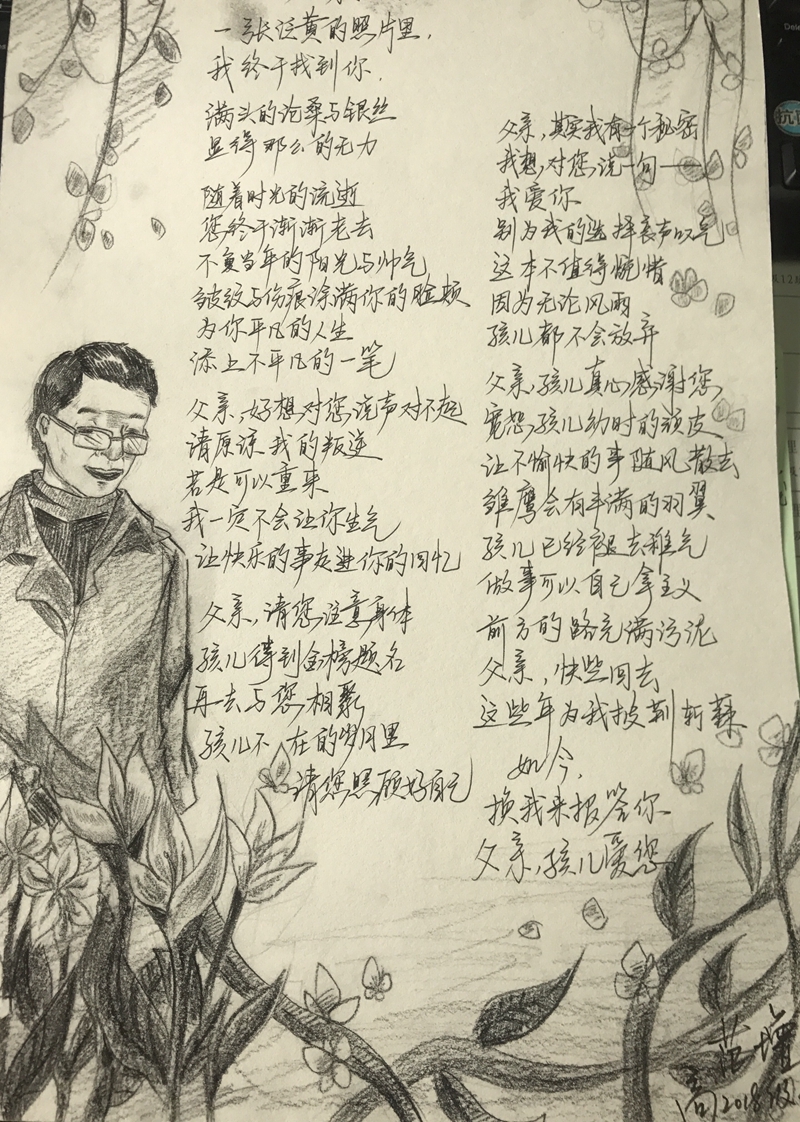 一张泛黄的照片里，
我终于找到你．
满头的沧桑与银丝
显得那么的无力
随着时光的流逝
您终于渐渐老去
不复当年的阳光与帅气
皱纹与伤痕涂满你的脸颊
为你平凡的人生
添上不平凡的一笔
父亲，好想对您说声对不起
请原谅我的叛逆
若是可以重来
我一定不会让你生气
让快乐的事走进你的回忆
父亲，请您注意身体
孩儿得到金榜题名
再去与您相聚
孩儿不在的岁月里
请您照顾好自己
父亲，其实我有一个秘密
我想对您说一句——
我爱你
别为我的选择哀声叹气
这本不值得惋惜
因为无论风雨
孩儿都不会放弃
父亲，孩儿真心感谢您，
宽恕孩儿幼时的顽皮
让不愉快的事随风散去
雏鹰会有丰满的羽翼
孩儿已经褪去稚气
做事可以自己拿主义
前方的路充满污泥
父亲，快些回去
这些年为我披荆斩棘
如今，
换我来报答你
父亲，孩儿爱您
高2018级